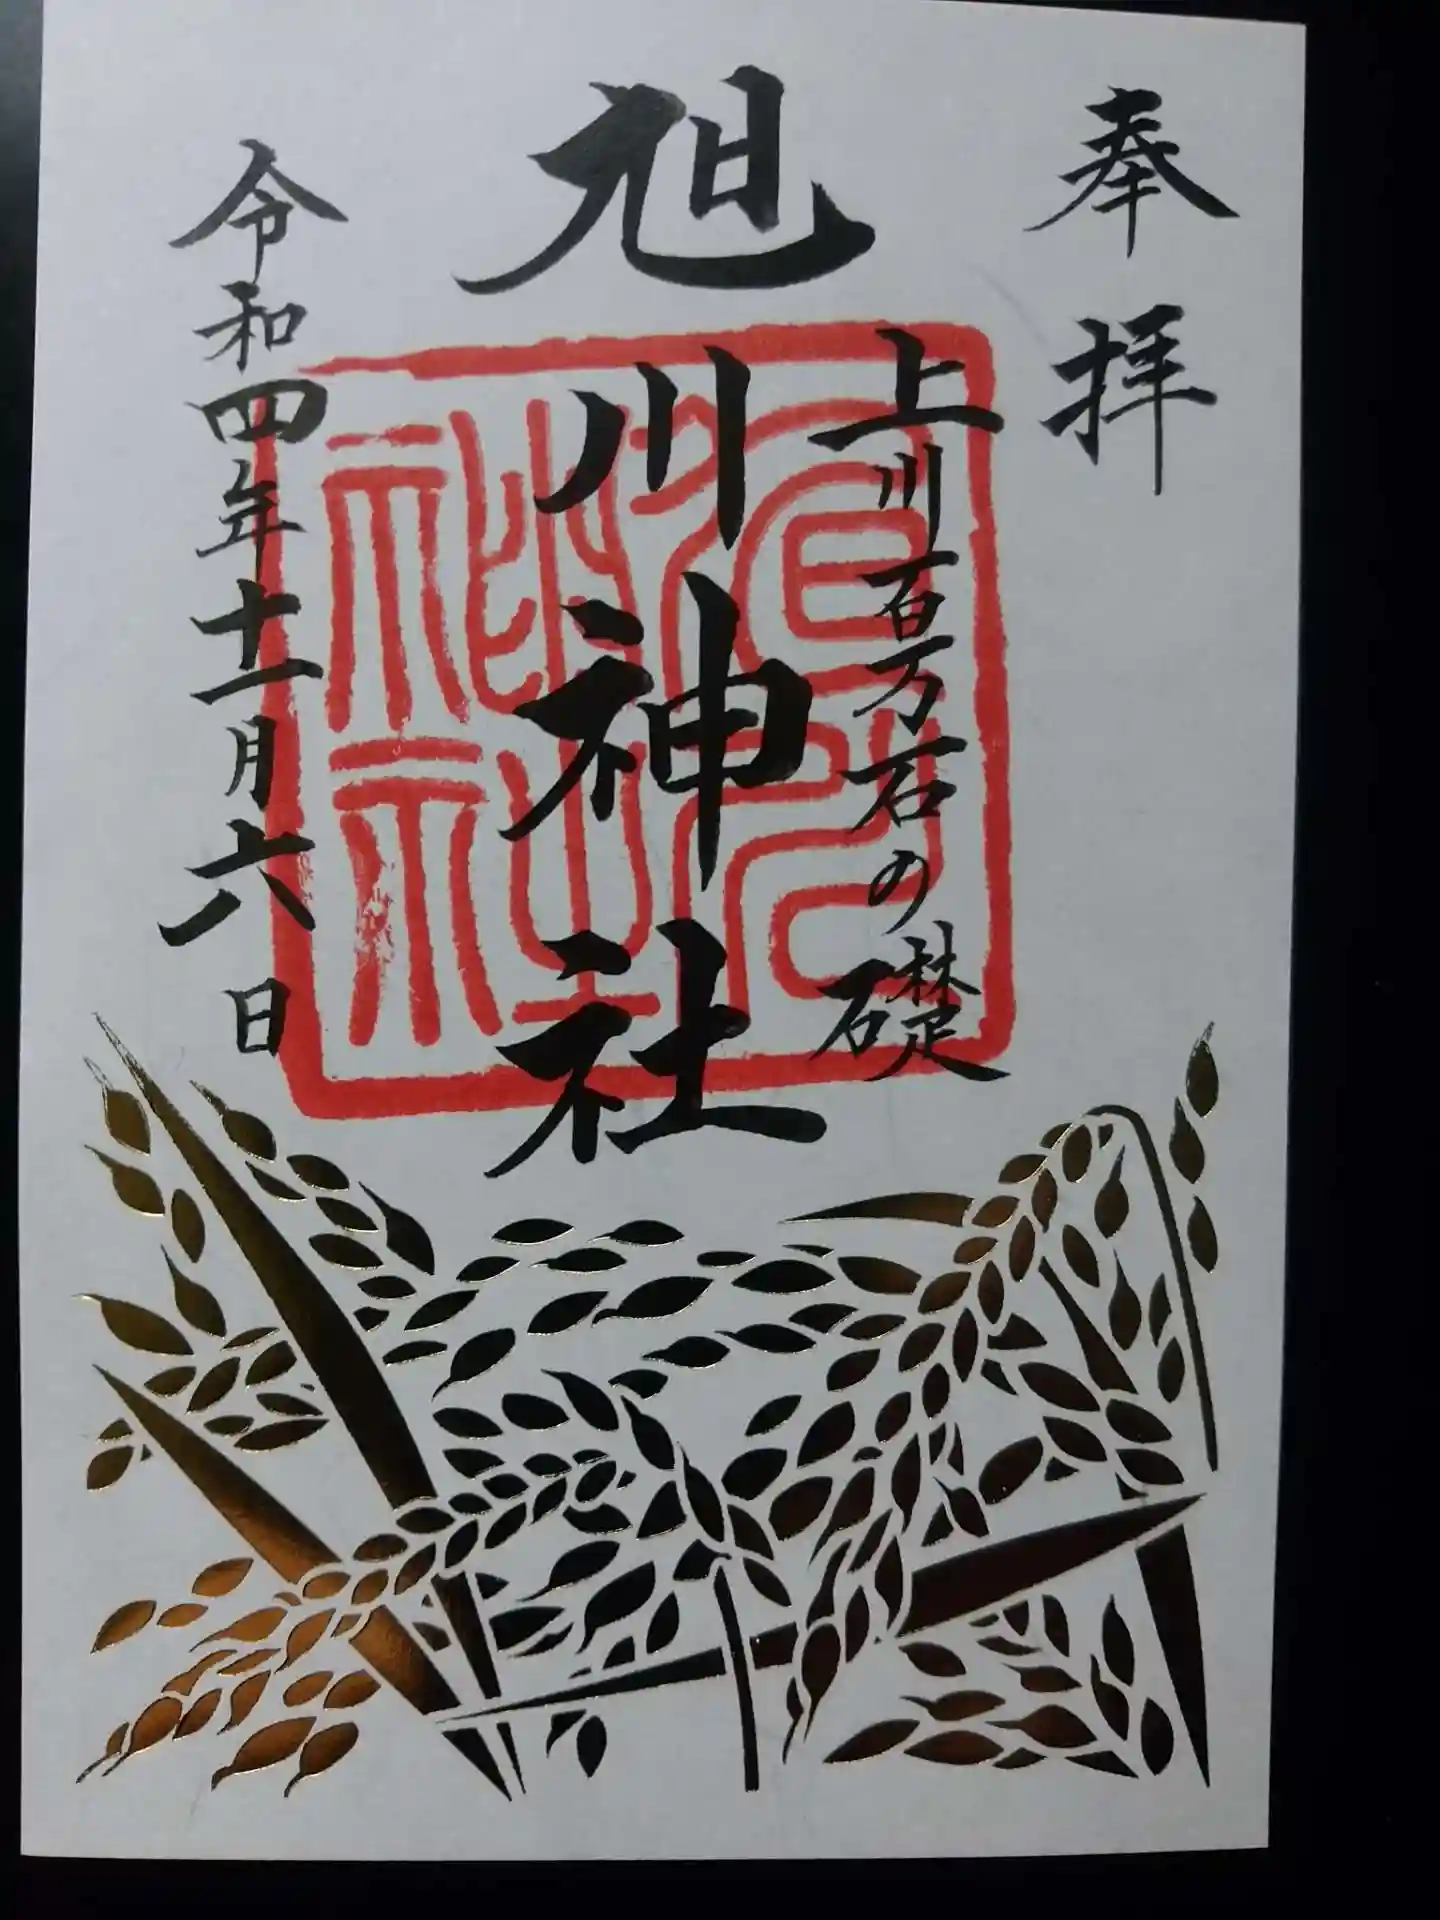 奉拝
上川百万石の礎
旭川神社
令和四年十一月六日